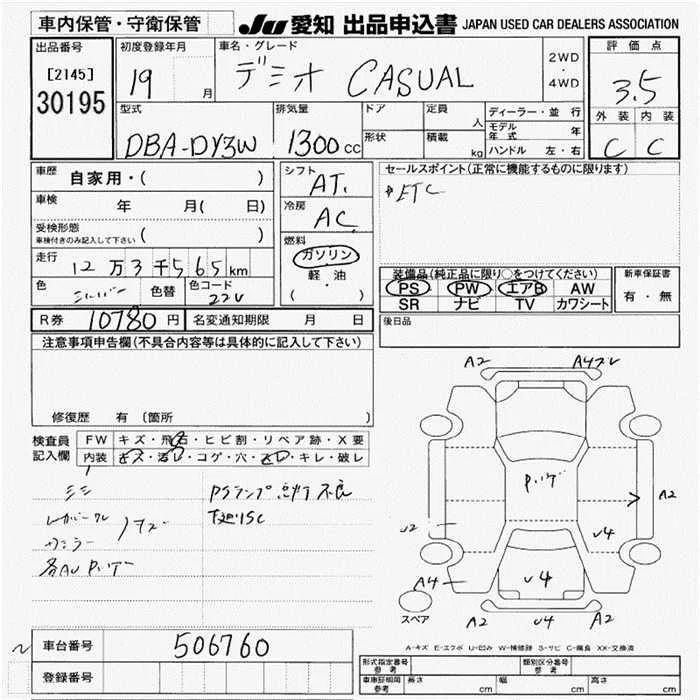 車内保管・守衛保管
JU 愛知 出品申込書 JAPAN USED CAR DEALERS ASSOCIATION
出品番号
[2145]
30195
初度登録年月
19 月
車名・グレード
デミオ CASUAL
2WD
・
4WD
評価点
3.5
外装 内装
C C
型式
DBA-DY3W
排気量
1300cc
ドア
形状
定員 人
積載 kg
ディーラー・並行
モデル年式 年
ハンドル 左・右
車歴 自家用・( )
車検 年 月( 日)
受検形態
車検付きのみ記入して下さい ( )
走行 12万3千565km
色 シルバー 色替 色コード 22V
シフト AT.
冷房 AC
燃料
ガソリン
軽・油
( ・ )
セールスポイント(正常に機能するものに限ります)
ETC
装備品(純正品に限り○をつけてください)
PS PW エアB AW
SR ナビ TV カワシート
新車保証書
有・無
R券 10780円 名変通知期限 月 日
後日品
注意事項申告欄(不具合内容等は具体的に記入して下さい)
修復歴 有 [箇所 ]
検査員
記入欄
FW キズ・飛石・ヒビ割・リペア跡・X要
内装 キズ・汚レ・コゲ・穴・スレ・キレ・破レ
PSランプ点灯不良
下廻りSC
A2 A4
A2
U2
U4
A4
U4
A2 U4 A2
スペア
A-キズ E-エクボ U-凹み W-補修跡 S-サビ C-腐食 XX-交換済
車台番号 506760
登録番号
形式指定番号
参考
類別区分番号
参考
車庫証明用
参考
長さ cm 幅 cm 高さ cm